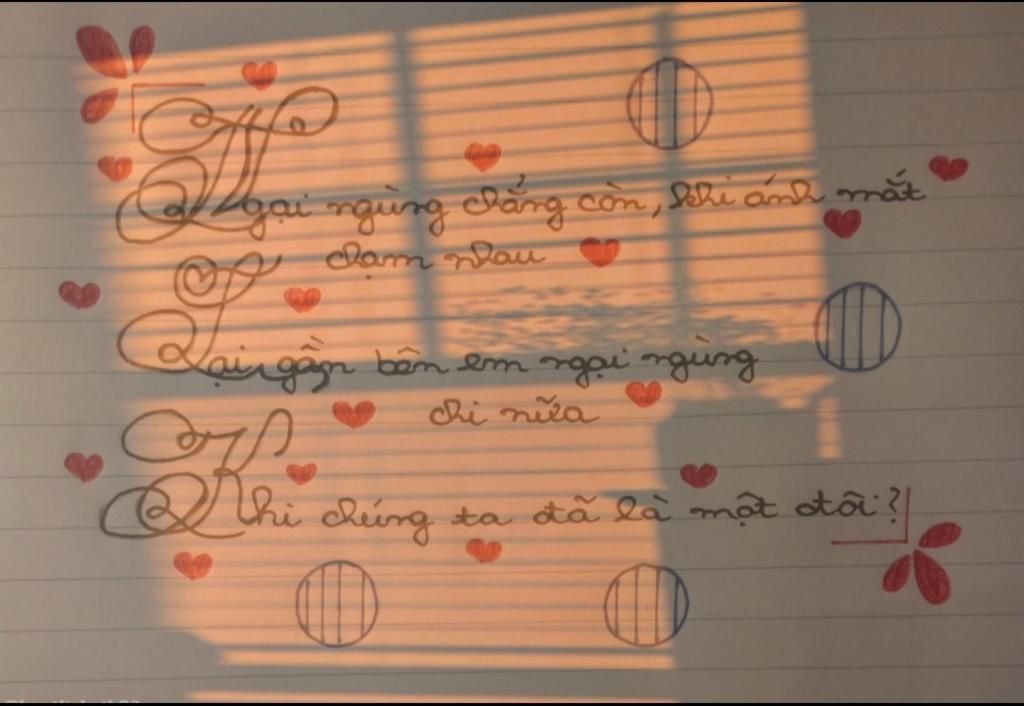 Ngại ngùng chẳng còn, khi ánh mắt
chạm nhau
Lại gần bên em ngại ngùng
chi nữa
Khi chúng ta đã là một đôi?